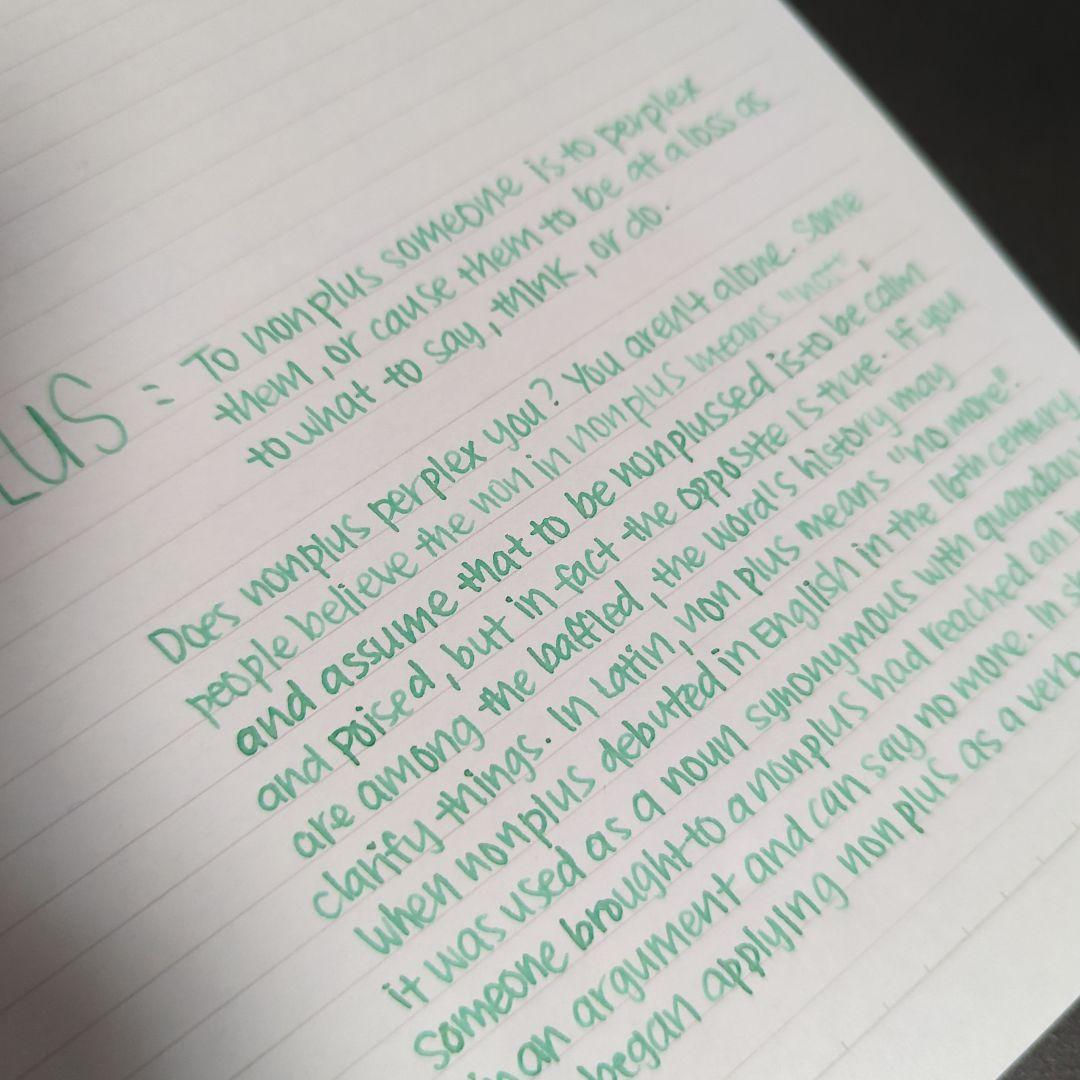 LUS = To nonplus someone is to perplex
them, or cause them to be at a loss as
to what to say, think, or do.
Does nonplus perplex you? You aren't alone. Some
people believe the non in nonplus means "not",
and assume that to be nonplussed is to be calm
and poised, but in fact the opposite is true. If you
are among the baffled, the word's history may
clarify things. In Latin, non plus means "no more".
When nonplus debuted in English in the 16th century
it was used as a noun synonymous with quandar
someone brought to a nonplus had reached an
in an argument and can say no more. In
began applying nonplus as a verb